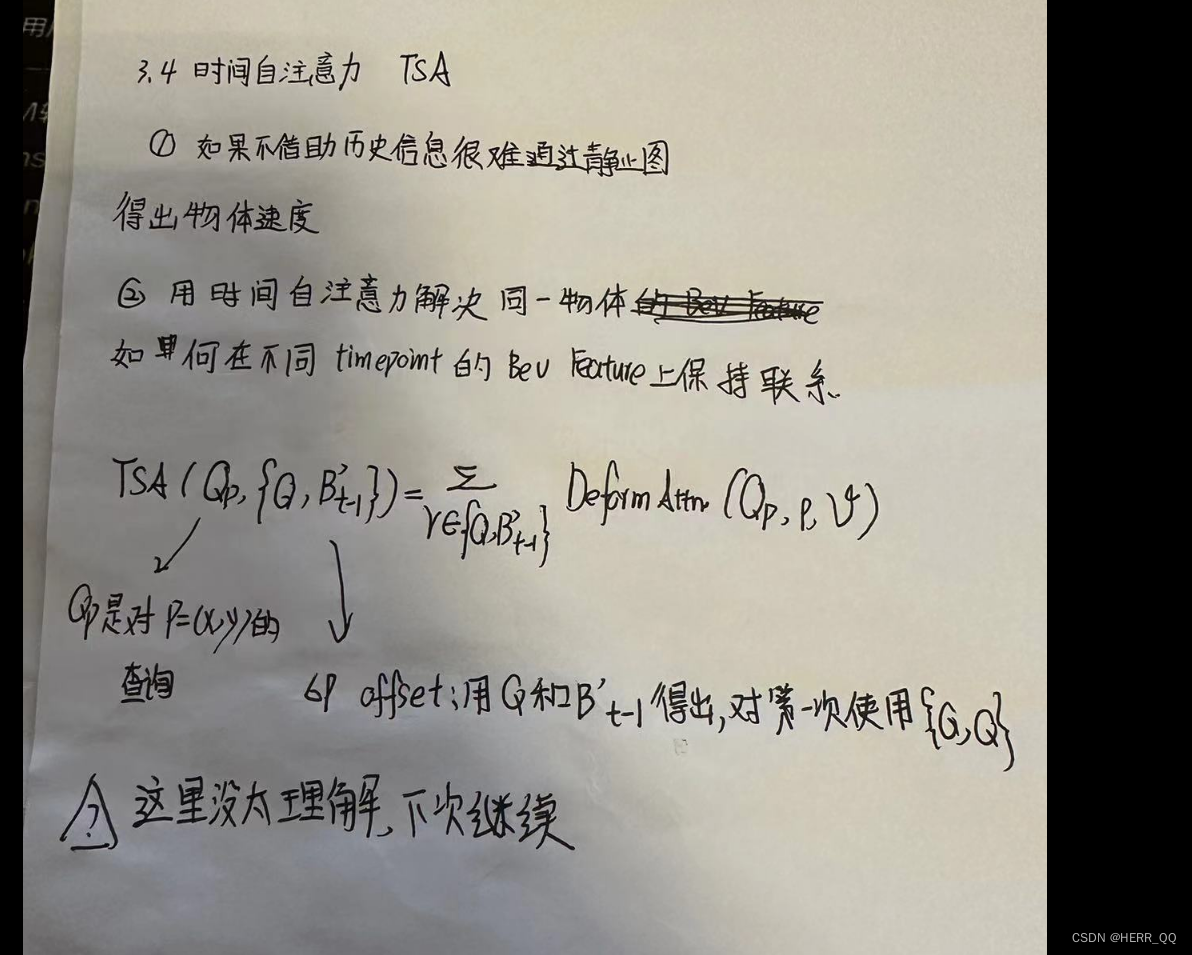 3.4 时间自注意力 TSA
① 如果不借助历史信息很难通过静止图
得出物体速度
② 用时间自注意力解决同一物体
如何在不同 timepoint 的 Bev Feature 上保持联系.
TSA(Qp, {Q, B't-1}) = Σ V∈{Q,B't-1} Deform Attn (Qp, P, V)
Qp是对 P=(x,y)的
查询
δP offset:用 Q 和 B't-1 得出,对第一次使用{Q,Q}
? 这里没太理解,下次继续
CSDN @HERR_QQ